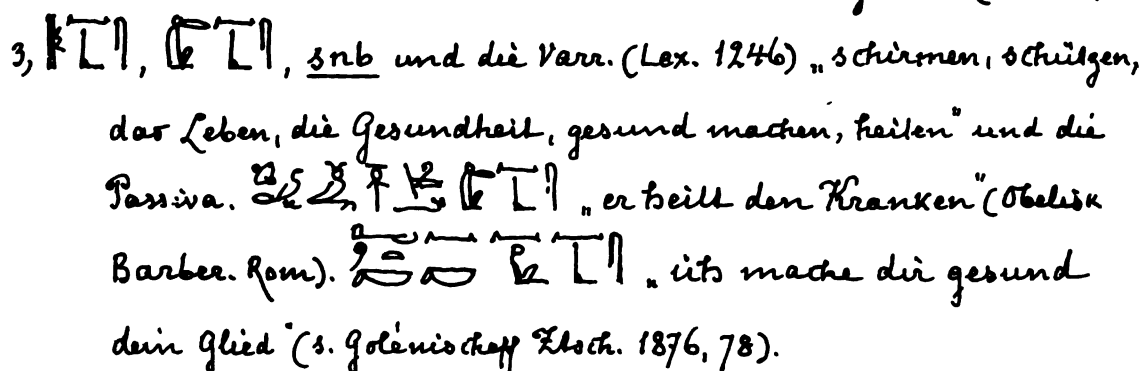 3, snb und die Varr. (Lex. 1246) „schirmen, schützen,
das Leben, die Gesundheit, gesund machen, heilen“ und die
Passiva. „er heilt den Kranken“ (Obelisk
Barber. Rom). „ich mache dir gesund
dein Glied“ (s. Golénischeff Ztsch. 1876, 78).